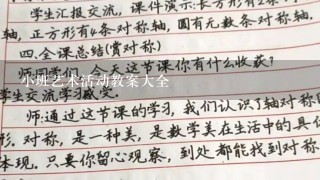 学生汇报交流,课件演示:长方形有2条
轴,正方形有4条对称轴,圆有无数条对称轴.
四.全课总结(赏对称)
今天这节课你有什么收获?
小班艺术活动教案大全
学生交流学习
师:通过这节课的学习,我们认识了轴对称
形.对称,是一种美,是数学美在生活中的具
体现.只要你留心观察,到处都能找到对称